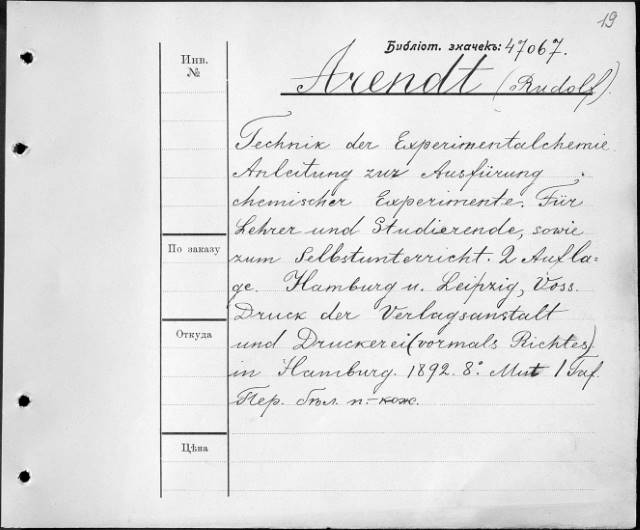 19
Библіот. значекъ: 47067.
Инв.
№
Arendt (Rudolf).
Technik der Experimentalchemie
Anleitung zur Ausfürung
chemischer Experimente. Für
Lehrer und Studierende, sowie
zum Selbstunterricht. 2 Aufla=
ge. Hamburg u. Leipzig, Voss.
Druck der Verlagsanstalt
und Druckerei (vormals Richtes)
in Hamburg. 1892. 8° Mit 1 Taf.
Пер. бѣл. п.-кож.
По заказу
Откуда
Цѣна